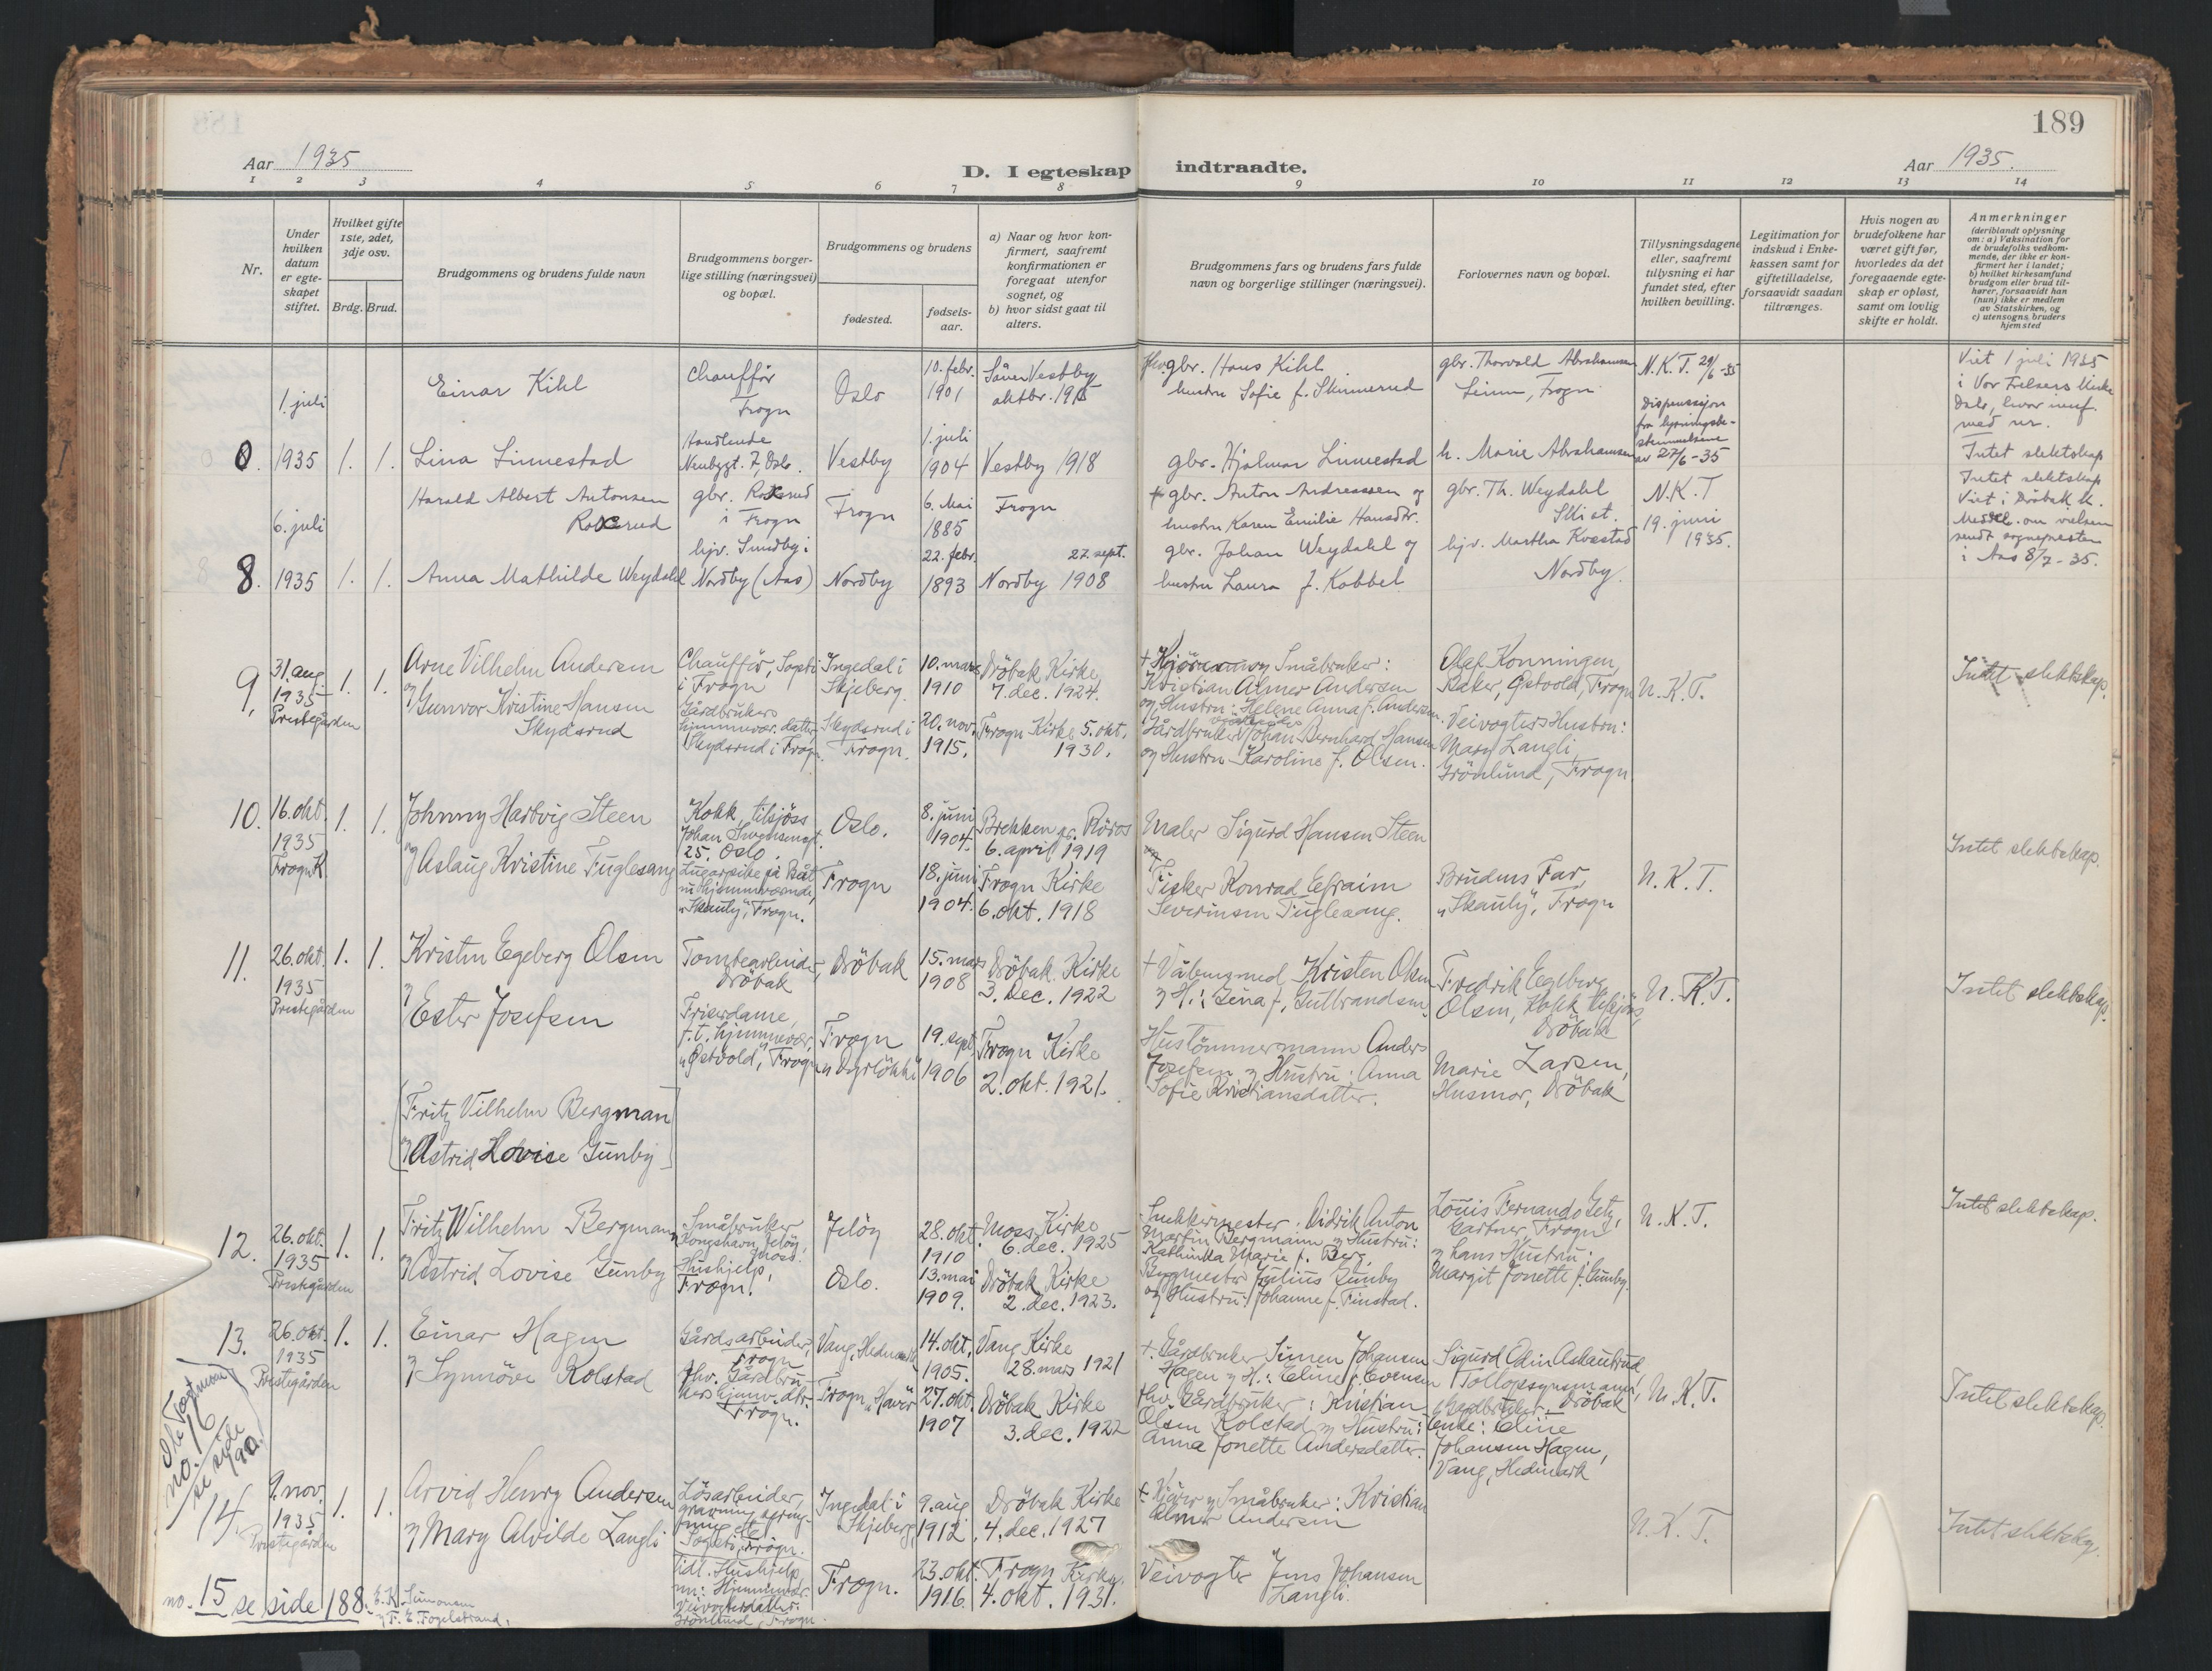 189
Aar 1935
D. I egteskap indtraadte.
Aar 1935.
1 2 3 4 5 6 7 8 9 10 11 12 13 14
Nr.
Under hvilken datum er egteskapet stiftet.
Hvilket gifte 1ste, 2det, 3dje osv.
Brdg. Brud.
Brudgommens og brudens fulde navn
Brudgommens borgerlige stilling (næringsvei) og bopæl.
Brudgommens og brudens
fødested.
fødselsaar.
a) Naar og hvor konfirmert, saafremt konfirmationen er foregaat utenfor sognet, og
b) hvor sidst gaat til alters.
Brudgommens fars og brudens fars fulde navn og borgerlige stillinger (næringsvei).
Forlovernes navn og bopæl.
Tillysningsdagene eller, saafremt tillysning ei har fundet sted, efter hvilken bevilling.
Legitimation for indskud i Enkekassen samt for giftetilladelse, forsaavidt saadan tiltrænges.
Hvis nogen av brudefolkene har været gift før, hvorledes da det foregaaende egteskap er opløst, samt om lovlig skifte er holdt.
Anmerkninger
(deriblandt oplysning om: a) Vaksination for de brudefolks vedkommende, der ikke er konfirmert her i landet;
b) hvilket kirkesamfund brudgom eller brud tilhører, forsaavidt han (hun) ikke er medlem av Statskirken, og
c) utensogns bruders hjemsted
0. 1 juli 1935 1. 1.
Einar Kihl
Lina Linnestad
Chauffør
Frogn
Oslo
10. febr. 1901
Såner Vestby
oktbr. 1915
gbr. Hans Kihl
hustru Sofie f. Skinnerud
gbr. Thorvald Abrahamsen
Linn, Frogn
N.K.T. 29/6-35
Dispensasjon
fra lysningsbe-
stemmelsene
av 27/6-35
Viet 1 juli 1935
i Vor Frelsers Kirke
Oslo, hvor innf.
med nr.
Intet slektskap
Neubggt. 7 Oslo.
Vestby
1. juli 1904
Vestby 1918
gbr. Hjalmar Linnestad
h. Marie Abrahamsen
8. 6. juli 1935 1. 1.
Harald Albert Antonsen
Roxerud
Anna Mathilde Weydahl
gbr. Roxerud
i Frogn
Frogn
6. Mai 1885
Frogn
gbr. Anton Andreassen og
hustru Karen Emilie Hansdtr.
gbr. Th. Weydahl
Ski st.
N.K.T
19. juni 1935.
Intet slektskap
Viet i Drøbak k.
Medd. om vielsen
sendt sognepresten
i Aas 8/7-35.
hjv. Sundby i
Nordby (Aas)
Nordby
22. febr. 1893
27. sept.
Nordby 1908
gbr. Johan Weydahl og
hustru Laura f. Kabbel
hjv. Martha Kvestad
Nordby.
9. 31. aug 1935 Prestegården 1. 1.
Arne Vilhelm Andersen
og Gunvor Kristine Hansen
Skydsrud
Chauffør, Sogsti
i Frogn
Ingedal i
Skjeberg.
10. mars 1910
Drøbak Kirke
7. dec. 1924.
Småbruker:
Kristian Almer Andersen
og Hustru: Helene Anna f. Andersen.
Olaf Konningen,
Baker, Østvold, Frogn
N.K.T.
Intet slektskap.
Gårdbrukers
hjemmevær. datter,
Skydsrud i Frogn.
Skydsrud i
Frogn.
20. nov. 1915.
Frogn Kirke 5. okt.
1930.
Gårdbruker Johan Bernhard Hansen
og Hustru Karoline f. Olsen.
Veivogters Hustru:
Mary Langli
Grönlund, Frogn
10. 16. okt. 1935 Frogn K. 1. 1.
Johnny Hartvig Steen
og Aslaug Kristine Fuglesang
Kokk, tilsjøss
Johan Svensensgt.
25. Oslo.
Oslo.
8. juni 1904.
Brekken pr. Röros
6. april 1919
Maler Sigurd Hansen Steen
Lugarpike på Båt
nu hjemmeværende,
"Skauly", Frogn.
Frogn
18. juni 1904.
Frogn Kirke
6. okt. 1918
Fisker Konrad Efraim
Severinsen Fuglesang.
Brudens Far,
"Skauly", Frogn
N.K.T.
Intet slektskap.
11. 26. okt. 1935 Prestegården 1. 1.
Kristen Egeberg Olsen
og Ester Josefsen
Tomtearbeider,
Drøbak
Drøbak
15. mars 1908
Drøbak Kirke
3. Dec. 1922
+ Våbensmed Kristen Olsen
og H.: Lina f. Gulbrandsen.
Fredrik Egeberg
Olsen, Kokk tilsjøss,
Drøbak
N.K.T.
Intet slektskap.
Friserdame,
f.t. hjemmevær,
"Østvold", Frogn
Frogn
19. sept 1906
Frogn Kirke
2. okt. 1921.
Hustömmermann Anders
Josefsen og Hustru: Anna
Sofie Kristiansdatter.
Marie Larsen,
Husmor, Drøbak
[Fritz Vilhelm Bergman
og Astrid Lovise Gunby]
12. 26. okt. 1935 Prestegården 1. 1.
Fritz Wilhelm Bergmann
og Astrid Lovise Gunby
Småbruker
Kongshavn, Jeløy,
Moss.
Jeløy
28. okt. 1910
Moss Kirke
6. dec. 1925
Snekkermester Didrik Anton
Martin Bergmann og Hustru:
Kathinka Marie f. Berg.
Louis Fernando Getz,
Gartner, Frogn
og hans Hustru:
Margit Jonette f. Gunby.
N.K.T.
Intet slektskap.
Hushjelp,
Frogn.
Oslo.
13. mai 1909.
Drøbak Kirke
2. dec. 1923.
Byggmester Julius Gunby
og Hustru: Johanne f. Finstad.
13. 26. okt. 1935 Prestegården 1. 1.
Einar Hagen
og Synnöve Kolstad
Gårdsarbeider,
Frogn
Vang, Hedmark
14. okt. 1905.
Vang Kirke
28. mars 1921
+ Gårdbruker Simen Johansen
Hagen og H.: Eline f. Evensen
Sigurd Odin Askautrud,
Tollopsynsmann,
Drøbak
N.K.T.
Intet slektskap.
fhv. Gårdbru-
kers hjemv. dtr.
Frogn.
Frogn, "Haver"
27. okt. 1907
Drøbak Kirke
3. dec. 1922
fhv. Gårdbruker: Kristian
Olsen Kolstad og Hustru:
Anna Jonette Andersdatter.
Gårdbruker-
Enke: Eline
Johansen Hagen,
Vang, Hedmark
no. 16
se side
190.
14. 9. nov. 1935 Prestegården 1. 1.
Arvid Henry Andersen
og Mary Alvilde Langli
Lösarbeider,
Sogsti, Frogn.
Ingedal i
Skjeberg
9. aug 1912
Drøbak Kirke
4. dec. 1927
+ Kjører og Småbruker: Kristian
Almer Andersen
N.K.T.
Intet slektskap.
tidl. Hushjelp,
nu: Hjemmevær.
Veivogterdatter.
Grönlund, Frogn.
Frogn.
23. okt. 1916.
Frogn Kirke.
4. okt. 1931.
Veivogter Jens Johansen
Langli.
no. 15 se side 188. E. K. Simonsen
og F. E. Fogelstrand.